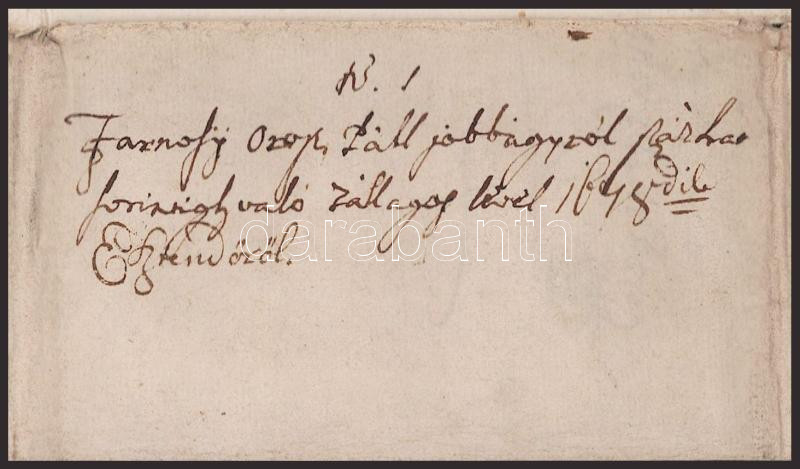 N. 1
Tarnosÿ Orosz Páll jobbágyról száz har
forintigh való zállagos levél 1678dik
Esztendőről.
darabanth